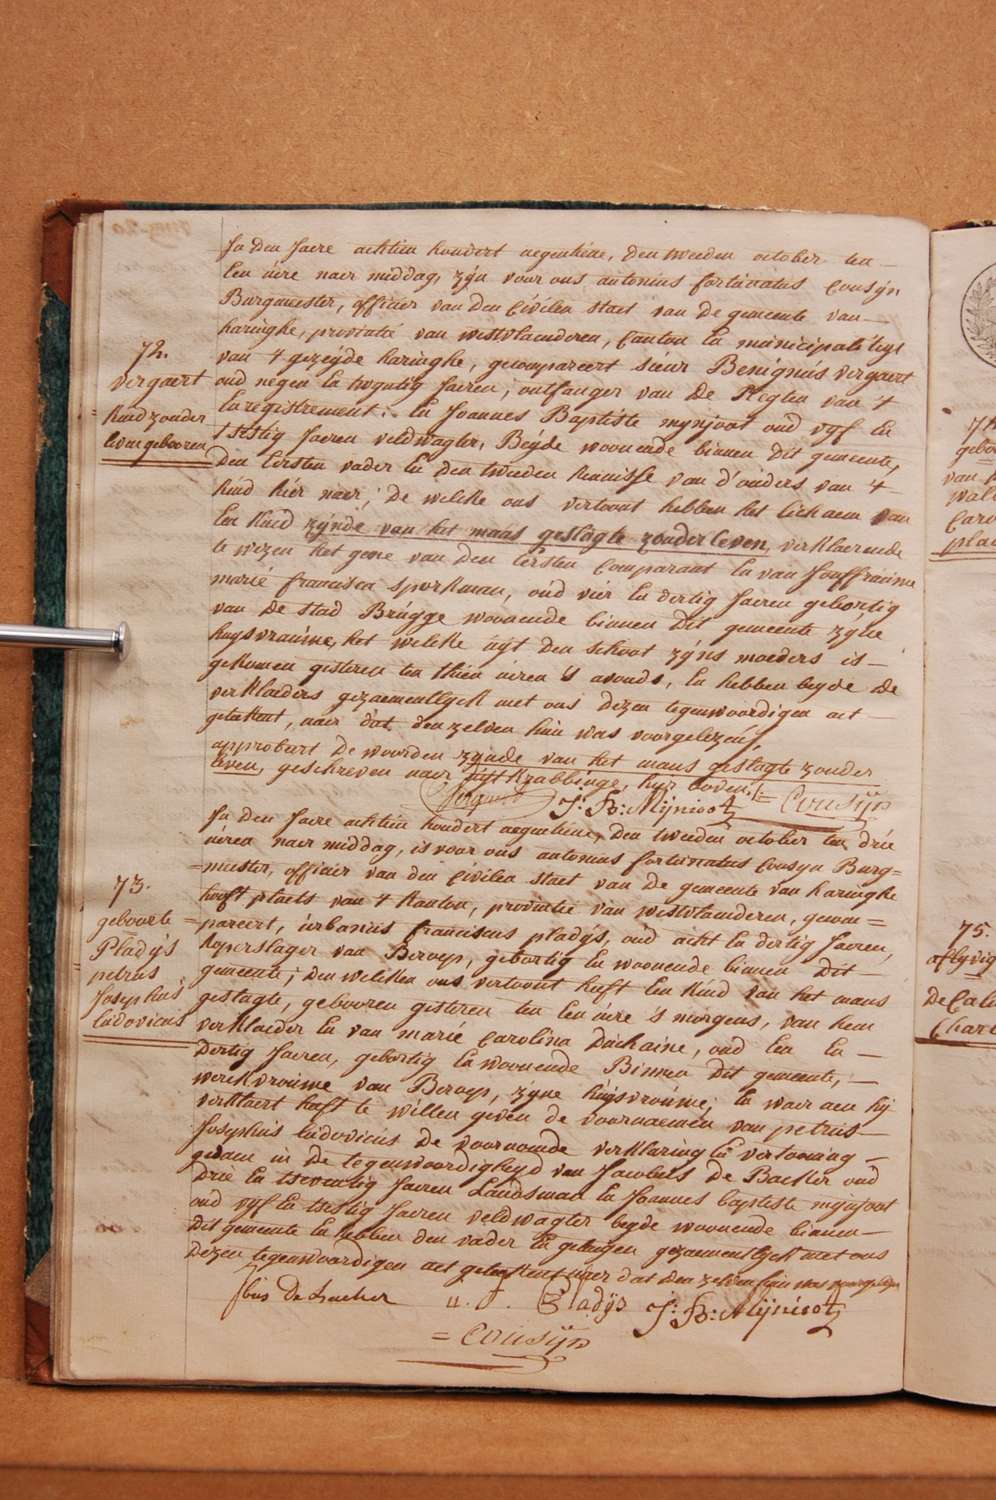 72.
vergaert
Kind zonder
leven gebooren
In den Jaere achtien hondert negentiene, den tweeden october ten
een uire naer middag, zijn voor ons antonius fortunatus Cousijn
Burgmeester, officier van den Civilen staet van de gemeente van
haringhe, provintie van westvlaenderen, Canton en municipaliteyt
van 't gezeijde haringhe, gecompareert sieur Benignus vergaert
oud negen en twyntig Jaeren, ontfanger van de Regten van 't
Enregistrement; En Joannes Baptiste mynjoot oud vyf en
tsestig Jaeren veldwagter, Beyde woonende binnen dit gemeente,
den Eersten vader En den tweeden kennisse van d'ouders van 't
kind hier naer; de welke ons vertoont hebben het lichaem van
Een kind zynde van het mans geslagte zonder leven, verklaerende
te wezen het gone van den Eersten Comparant En van Jouffrauwe
marie francisca sporkman, oud vier En dertig Jaeren gebortig
van de stad Brugge woonende binnen dit gemeente zyne
huysvrauwe, het welke uyt den schoot zyns moeders is
gekomen gisteren ten thien uiren 's avonds, En hebben beyde de
verklaerders gezaementlyck met ons dezen tegenwoordigen act
geteekent, naer dat denzelven hun was voorgelezen,
approbeert de woorden zynde van het mans geslagte zonder
leven, geschreven naer uijtkrabbinge, hier boven.
Vergaert J: B: Mijnioot = Cousijn
73.
geboorte
Pladys
petrus
Josephus
ludovicus
In den Jaere achtien hondert negentiene, den tweeden october ten drie
uiren naer middag, is voor ons antonius fortunatus Cousyn Burg=
=meester, officier van den Civilen staet van de gemeente van haringhe
hooft plaets van 't kanton, provintie van westvlaenderen, gecom=
=pareert, urbanus franciscus pladys, oud acht En dertig Jaeren,
koperslager van Beroep, gebortig En woonende binnen dit
gemeente; den welken ons vertoont heeft Een kind van het mans
geslagte, gebooren gisteren ten Een uire 's morgens, van hem
verklaerder En van marie Carolina Duchaine, oud Een En
dertig Jaeren, gebortig En woonende Binnen dit gemeente,
werkvrouwe van Beroep, zyne huysvrouwe; En waer aen hy
verklaert heeft te willen geven de voornaemen van petrus
Josephus ludovicus de voornoemde verklaring En vertooning
gedaen in de tegenwoordigheyd van Jacobus de Backer oud
drie En tseventig Jaeren Landsman En Joannes baptiste mynjoot
oud vyf En tsestig Jaeren veldwagter beyde woonende binnen
dit gemeente En hebben den vader En getuigen gezaementlyck met ons
dezen tegenwoordigen act geteekent naer dat den zelven hun was voorgelezen
Jbus De backer u. f. Pladijs J: B: Mijnioot
= Cousijn
75.